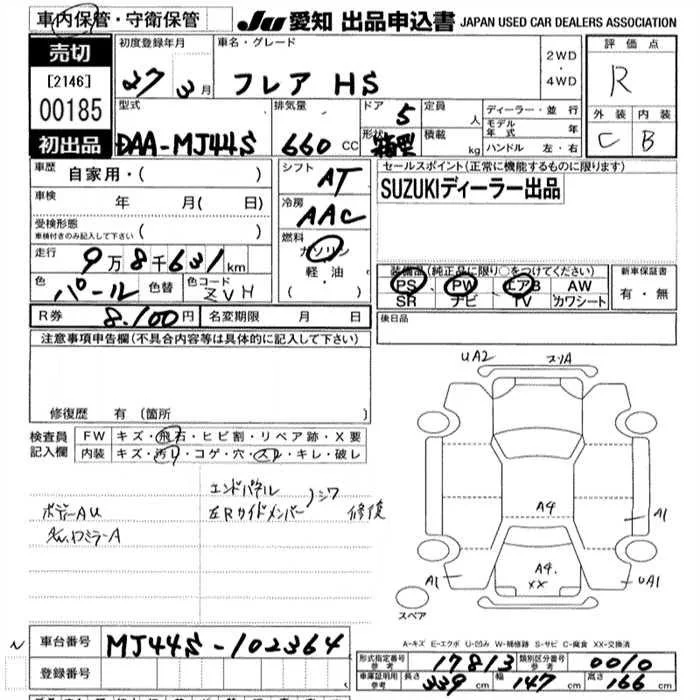 車内保管・守衛保管
JU 愛知 出品申込書 JAPAN USED CAR DEALERS ASSOCIATION
売切
[2146]
00185
初出品
初度登録年月
27 3月
車名・グレード
フレア HS
2WD
・
4WD
評価点
R
型式
DAA-MJ44S
排気量
660 CC
ドア 5
形状 箱型
定員 人
積載 kg
ディーラー・並行
モデル年式 年
ハンドル 左・右
外装 内装
C B
車歴 自家用・( )
車検 年 月( 日)
受検形態
車検付きのみ記入して下さい ( )
走行 9万8千631km
色 パール 色替 色コード ZVH
シフト AT
冷房 AAC
燃料
ガソリン
軽・油
( )
セールスポイント(正常に機能するものに限ります)
SUZUKIディーラー出品
装備品(純正品に限り○をつけてください)
PS PW エアB AW
SR ナビ TV カワシート
新車保証書
有・無
R券 8,100円 名変期限 月 日
後日品
注意事項申告欄(不具合内容等は具体的に記入して下さい)
修復歴 有 (箇所 )
検査員記入欄
FW キズ・飛石・ヒビ割・リペア跡・X要
内装 キズ・汚れ・コゲ・穴・スレ・キレ・破レ
エンドパネル
ボデーAU
左Rサイドメンバー
シワ 修復
UA2
A4
A1
A4.
XX
A1
UA1
スペア
A-キズ E-エクボ U-凹み W-補修跡 S-サビ C-腐食 XX-交換済
車台番号 MJ44S-102364
登録番号
形式指定番号 参考 17813
類別区分番号 参考 0010
車庫証明用 参考 長さ 339cm 幅 147cm 高さ 166cm